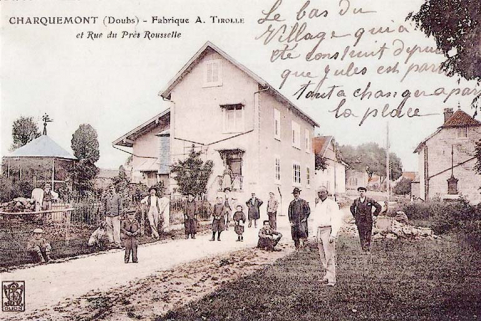 CHARQUEMONT (Doubs) - Fabrique A. TIROLLE
et Rue du Prés Rousselle
Le bas du
Village qui a
été construit depuis
que Jules est parti
tout a changé a par
la place